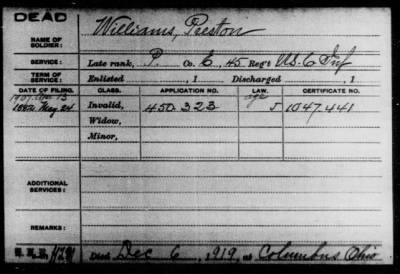 DEAD
NAME OF SOLDIER: Williams, Preston
SERVICE: Late rank, P. Co. E, 45 Reg't U.S.C Inf
TERM OF SERVICE: Enlisted , 1 Discharged , 1
DATE OF FILING. CLASS. APPLICATION NO. LAW. CERTIFICATE NO.
1907 13 age
1882 May 24 Invalid, 450.323 J 1047.441
Widow,
Minor,
ADDITIONAL SERVICES:
REMARKS:
Died Dec 6, 1919, at Columbus Ohio